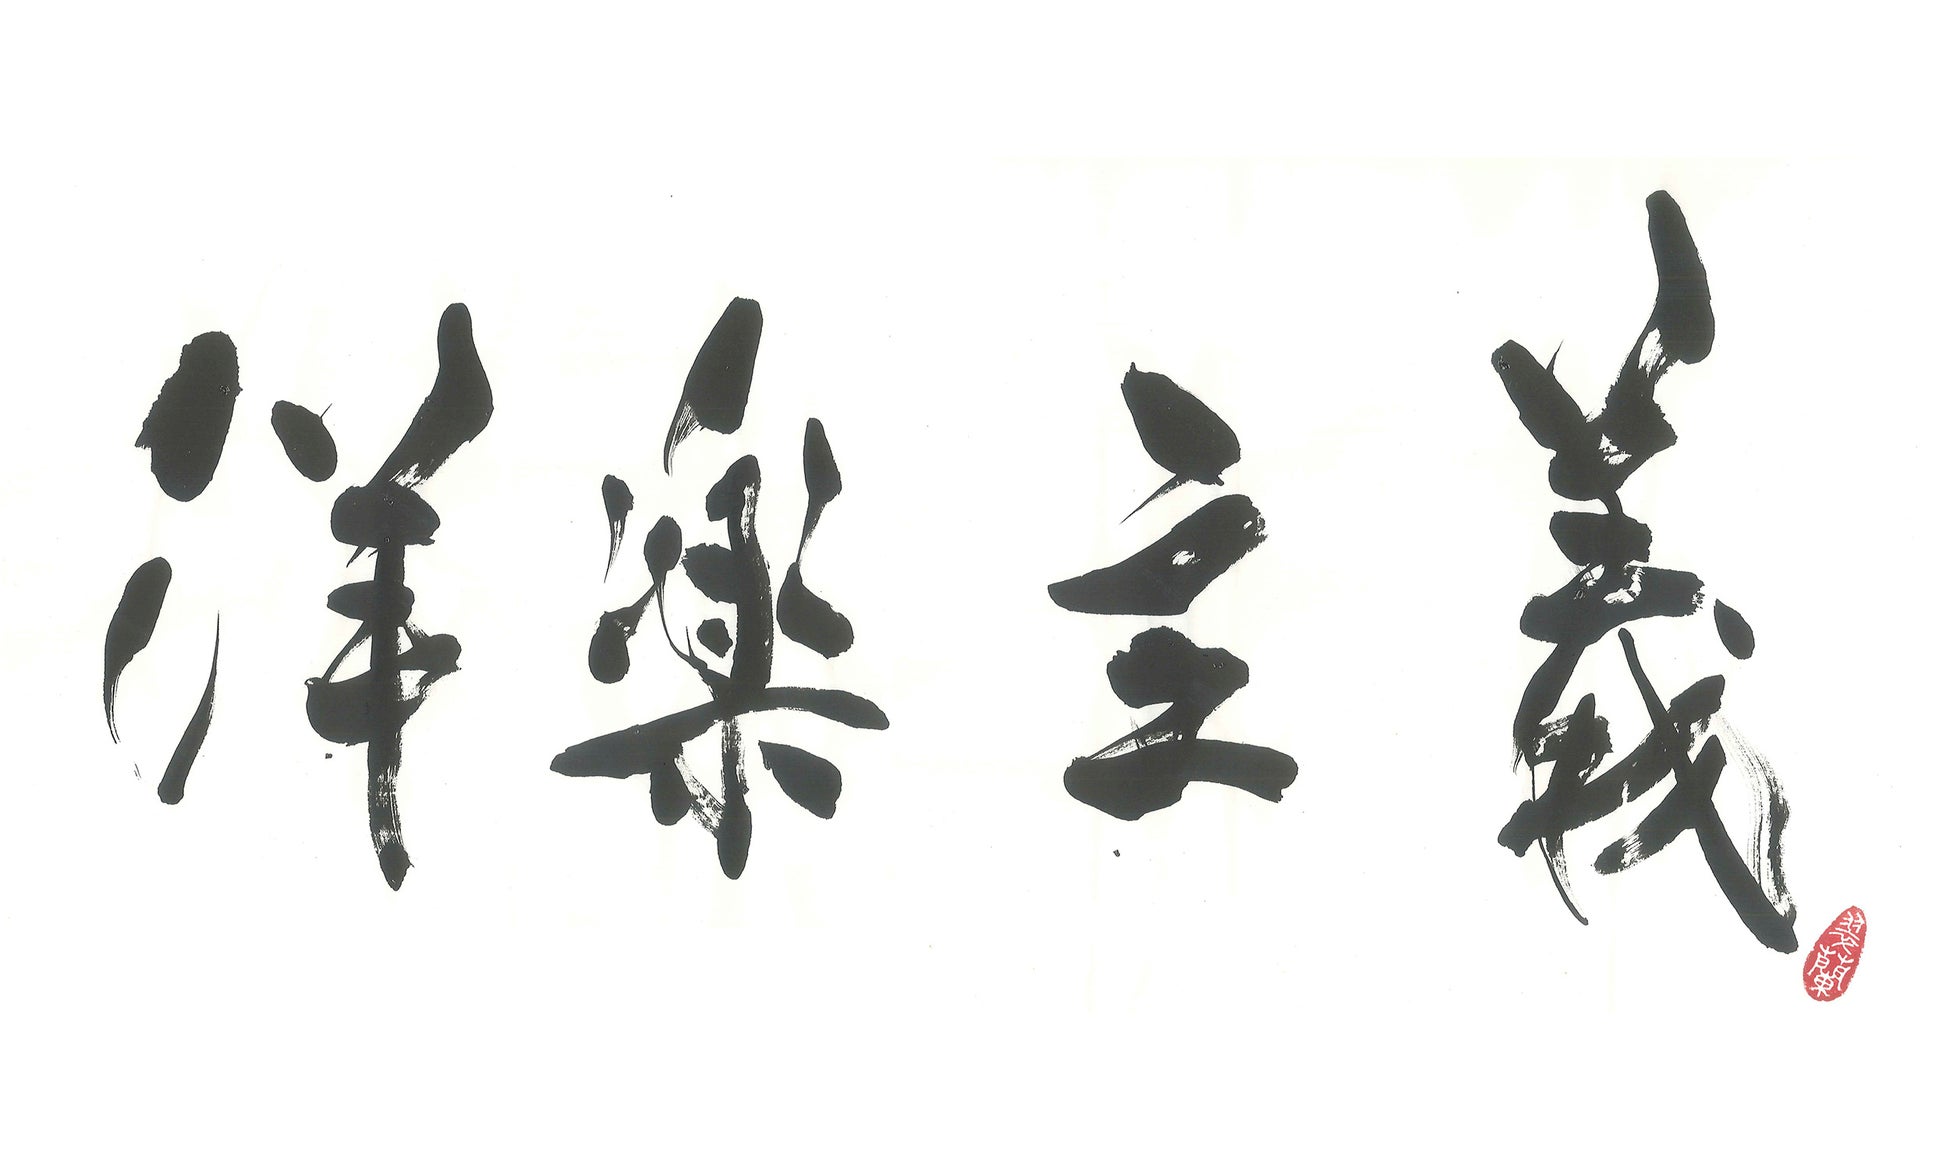 洋楽主義